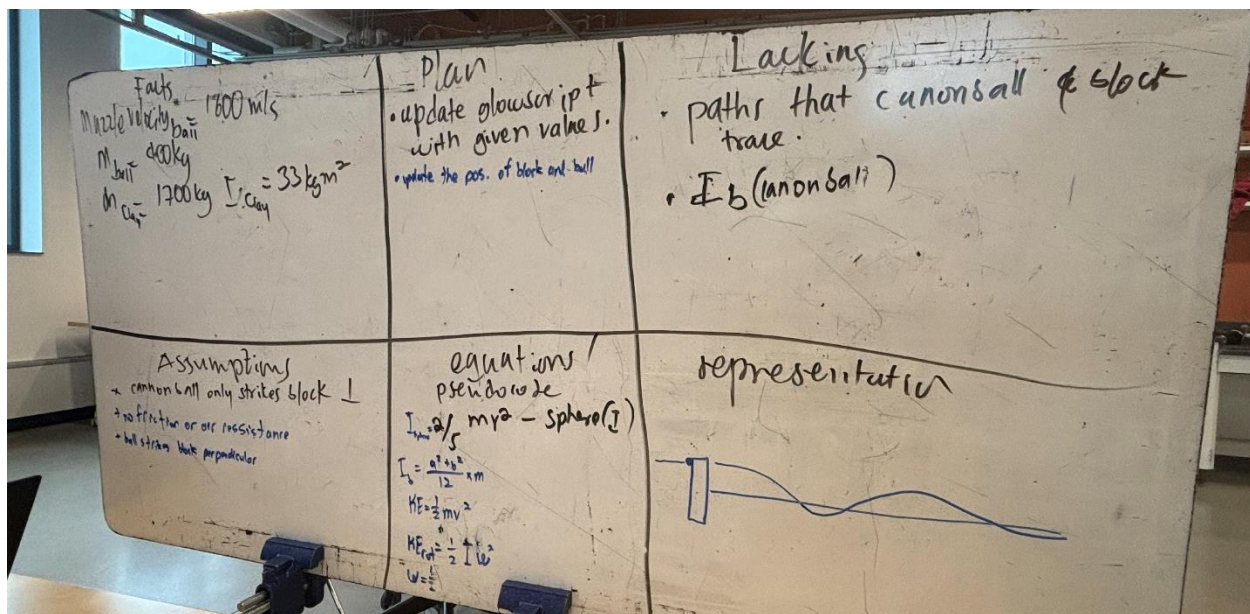 Facts
Muzzle velocity ball = 1800 m/s
m ball = 400kg
m clay = 1700kg I clay = 33 kgm²
Plan
• update glowscript
with given values.
• update the pos. of block and ball
Lacking
• paths that canonball & block
trace.
• I b (canonball)
Assumptions
* cannonball only strikes block ⊥
* no friction or air ressistance
* ball strikes block perpendicular
equations /
pseudocode
I = 2/5 mr² - sphere (I)
I b = a²+b²/12 × m
KE = 1/2 mv²
+
KE rot = 1/2 I w²
representation